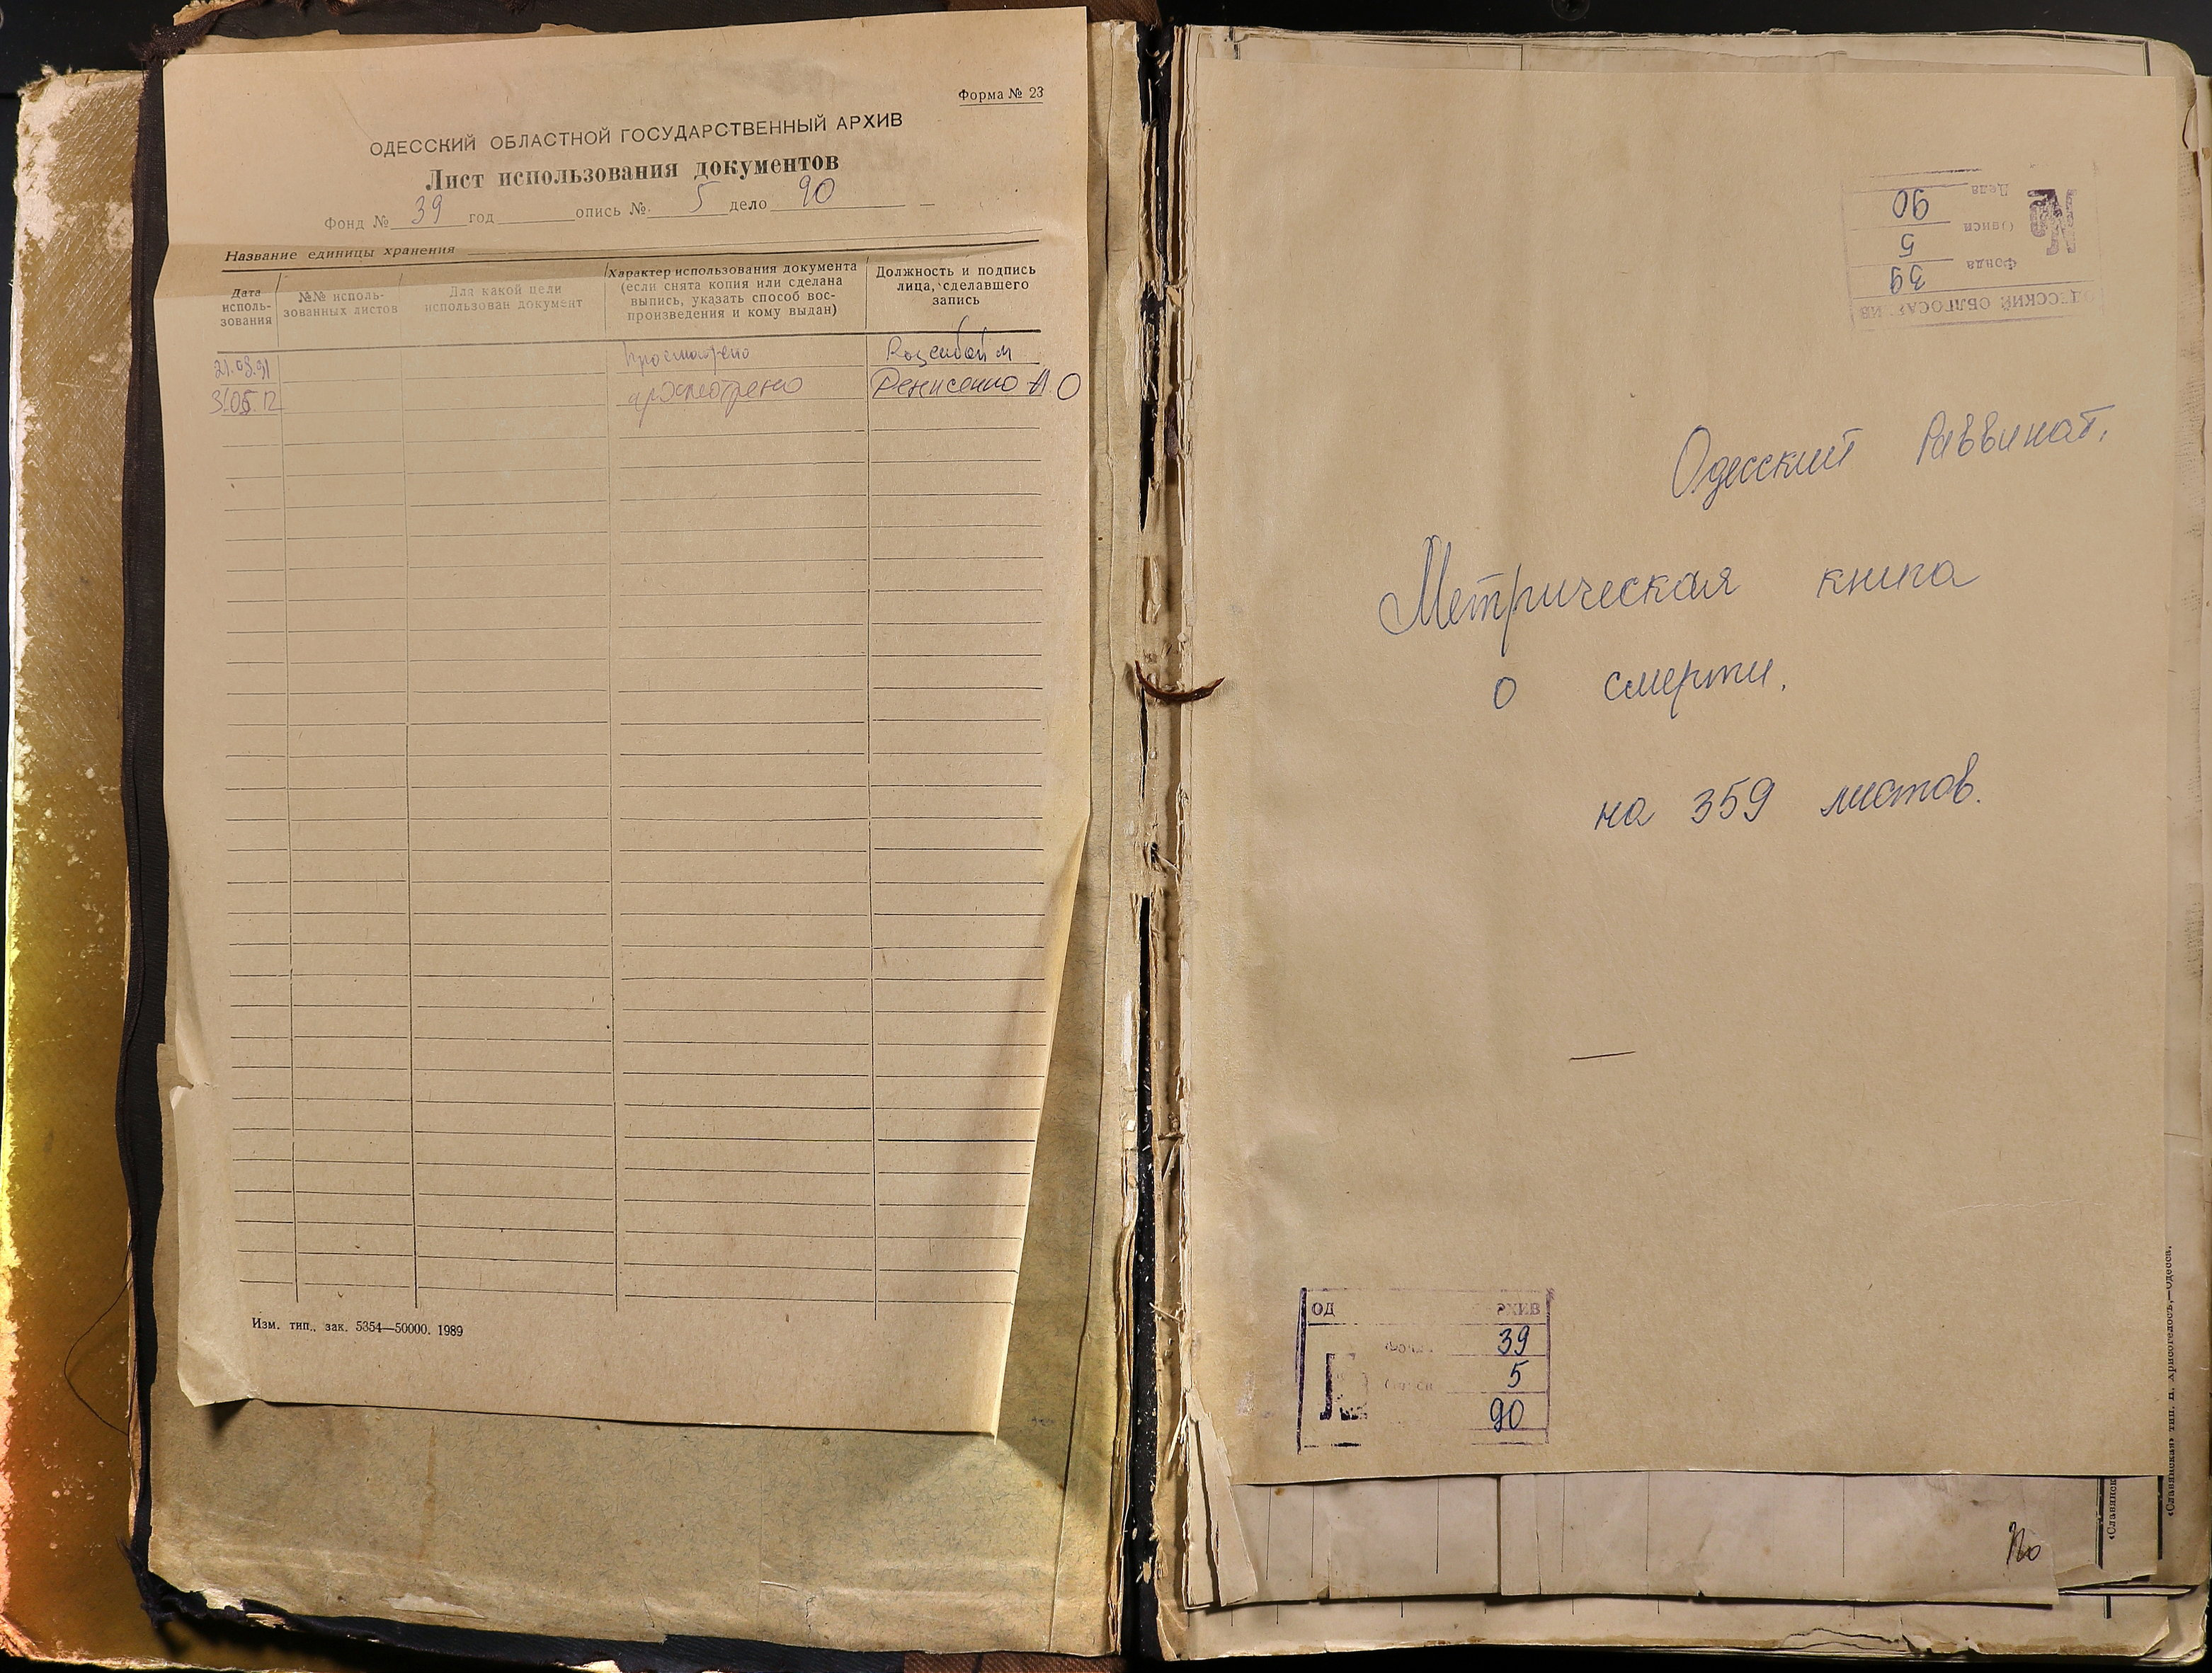 Форма № 23
ОДЕССКИЙ ОБЛАСТНОЙ ГОСУДАРСТВЕННЫЙ АРХИВ
Лист использования документов
Фонд № 39 год опись № 5 дело 90
Название единицы хранения
Дата исполь-
зования
№№ исполь-
зованных листов
Для какой цели
использован документ
Характер использования документа
(если снята копия или сделана
выпись, указать способ вос-
произведения и кому выдан)
Должность и подпись
лица, сделавшего
запись
21.08.91 просмотрено Розенбойм
31.05.12 просмотрено Денисенко А.О
Изм. тип., зак. 5354—50000. 1989
ОДЕССКИЙ ОБЛГОСАРХИВ
№
Фонда 39
Описи 5
Дела 90
Одесский Раввинат.
Метрическая книга
о смерти.
на 359 листов.
ОД АРХИВ
Фонда 39
Описи 5
90
«Славянская» тип. Н. Хрисогелосъ,—Одесса.
«Славянск